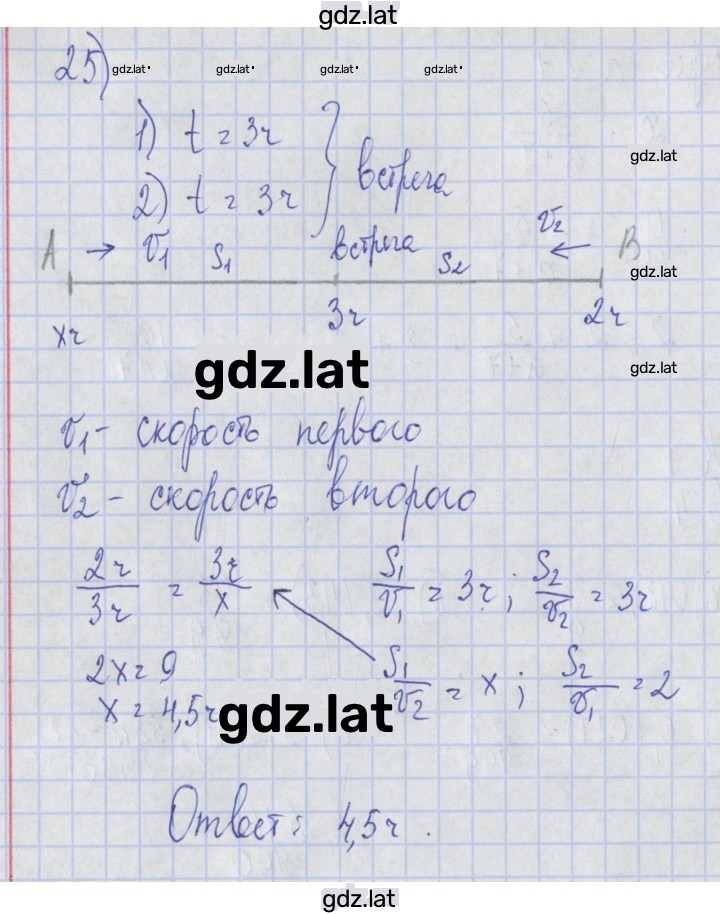 gdz.lat
25)
gdz.lat gdz.lat gdz.lat gdz.lat
1) t = 3ч
2) t = 3ч } встреча
gdz.lat
A → V₁ S₁ встреча S₂ V₂ ← B
gdz.lat
xч 3ч 2ч
gdz.lat gdz.lat
V₁ - скорость первого
V₂ - скорость второго
2ч/3ч = 3ч/x S₁/V₁ = 3ч; S₂/V₂ = 3ч
2x = 9 S₁/V₂ = x; S₂/V₁ = 2
x = 4,5ч gdz.lat
Ответ: 4,5ч.
gdz.lat